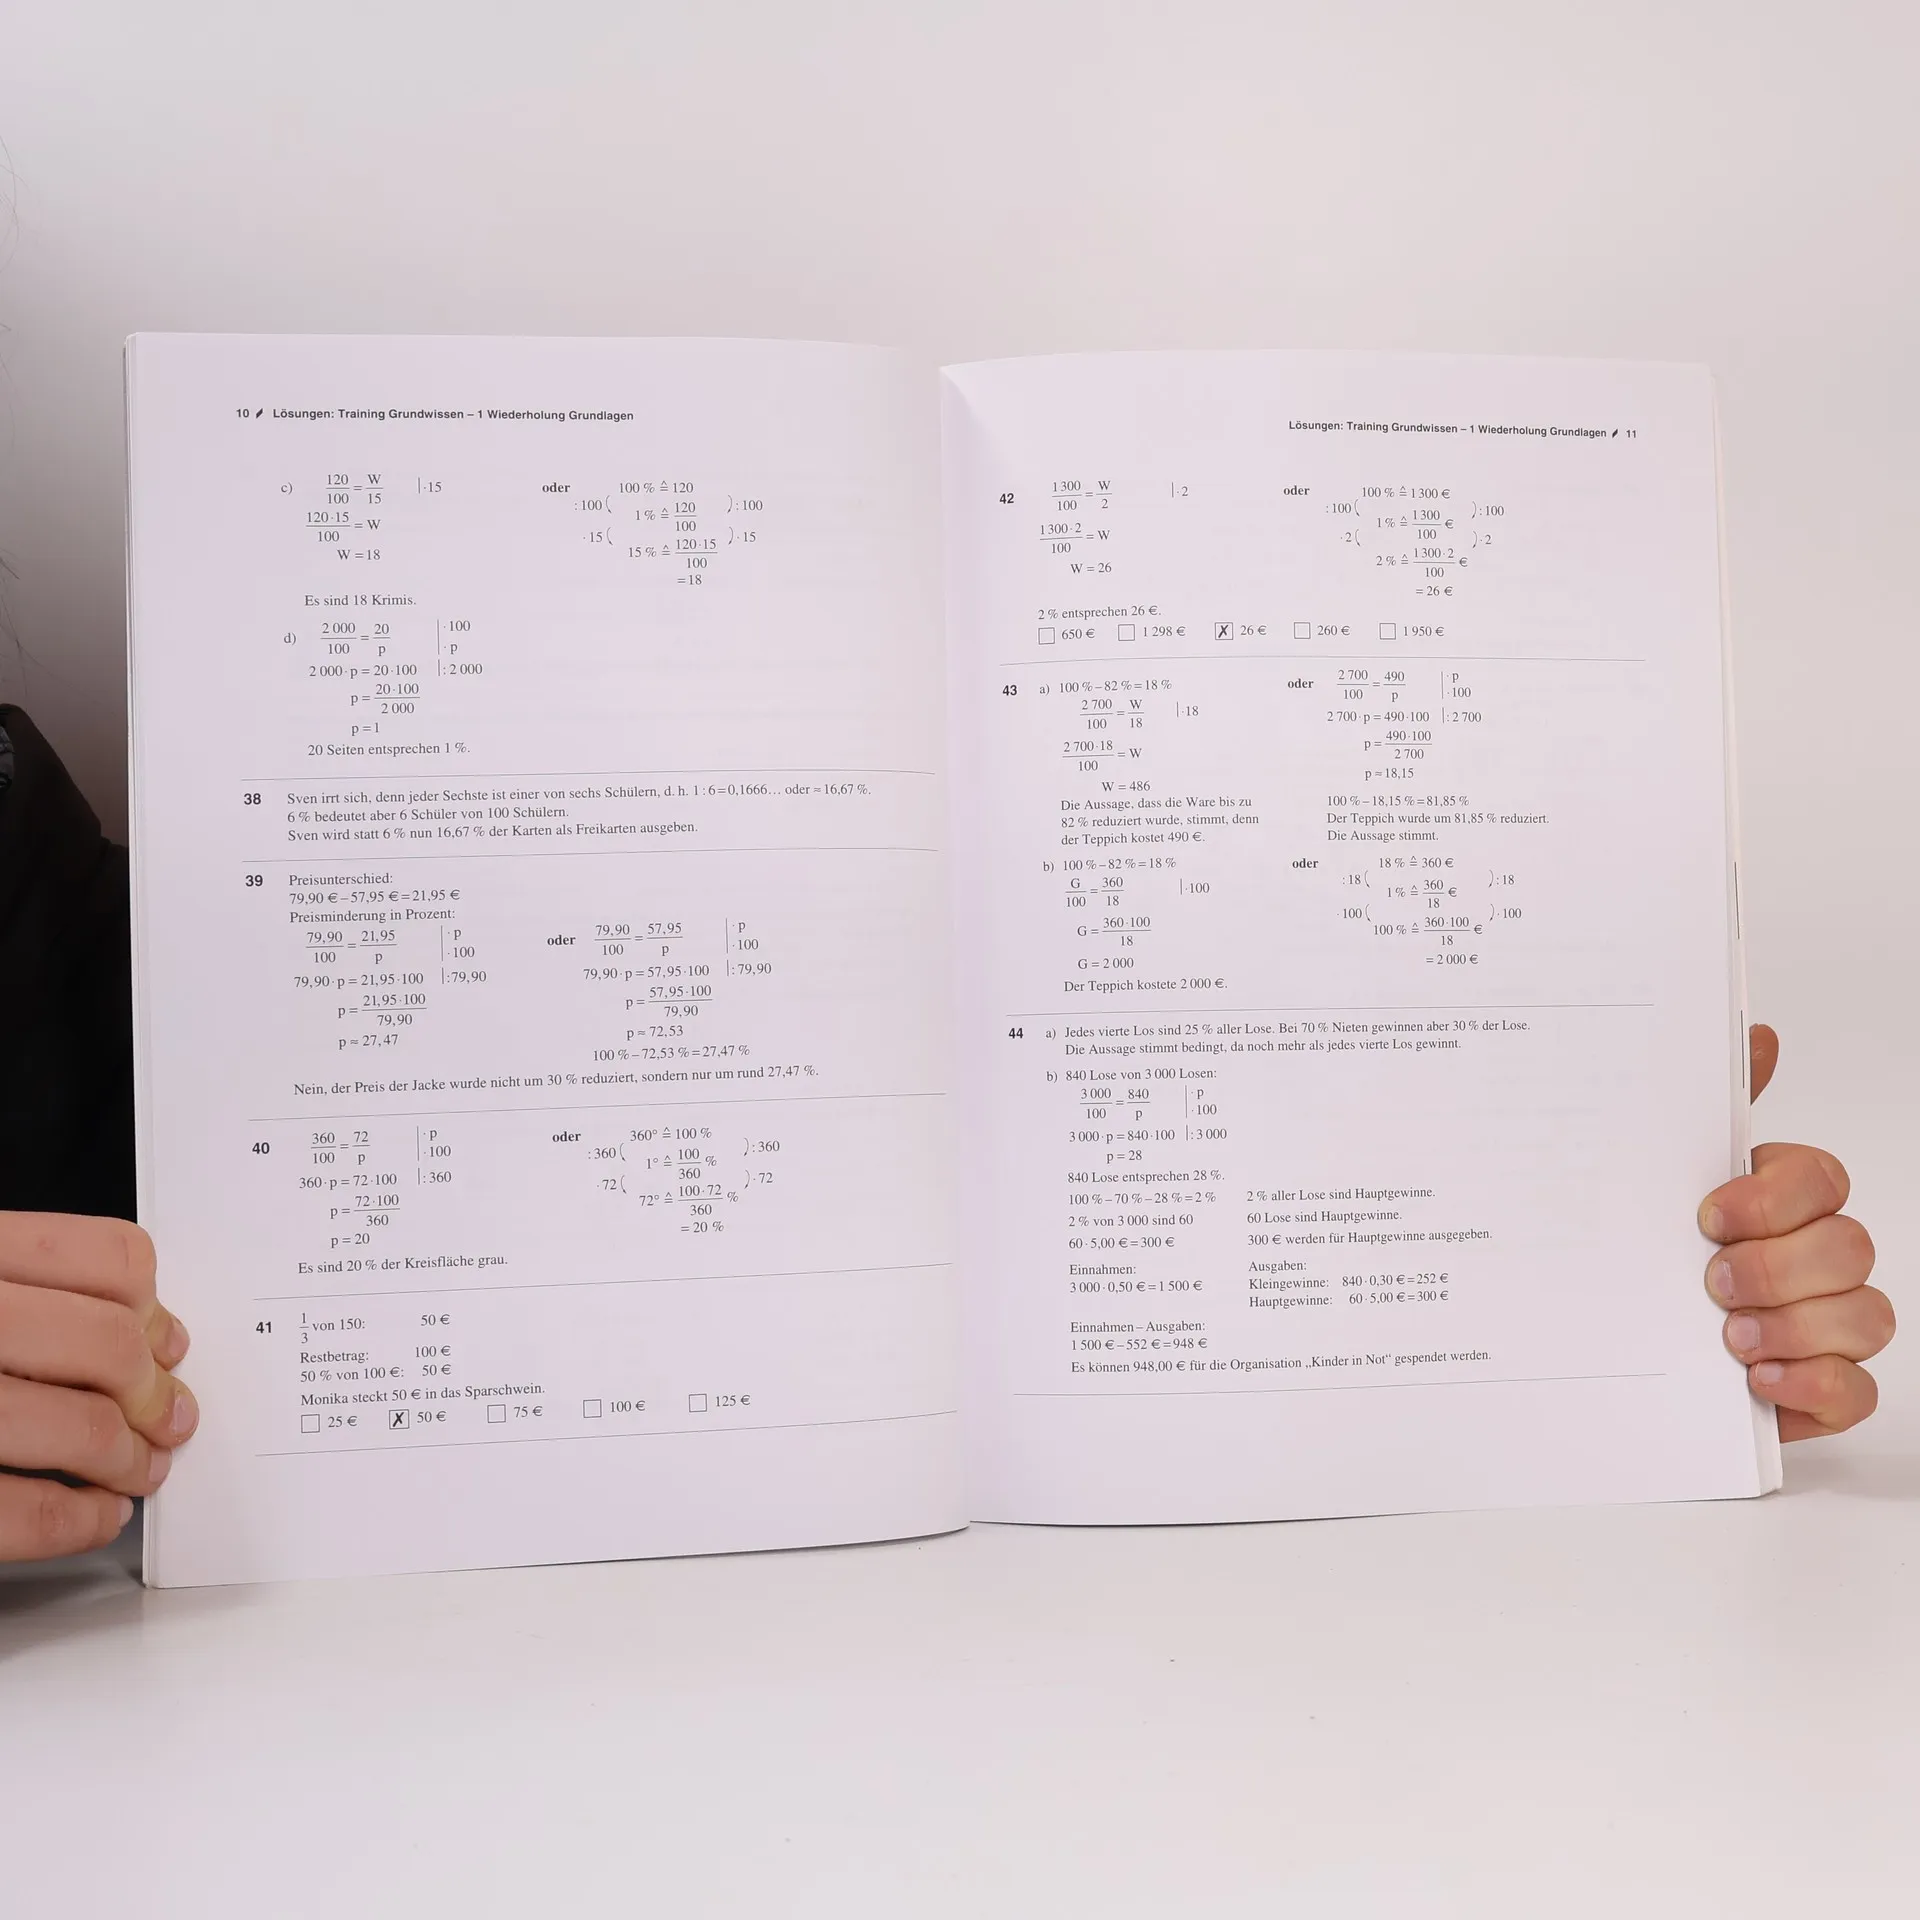 10 Lösungen: Training Grundwissen – 1 Wiederholung Grundlagen
c) 120/100 = W/15 | · 15
120 · 15/100 = W
W = 18
oder 100 % ≙ 120
: 100 ( 1 % ≙ 120/100 ) : 100
· 15 ( 15 % ≙ 120 · 15/100 ) · 15
= 18
Es sind 18 Krimis.
d) 2 000/100 = 20/p | · 100 | · p
2 000 · p = 20 · 100 | : 2 000
p = 20 · 100/2 000
p = 1
20 Seiten entsprechen 1 %.
38 Sven irrt sich, denn jeder Sechste ist einer von sechs Schülern, d. h. 1 : 6 = 0,1666… oder ≈ 16,67 %.
6 % bedeutet aber 6 Schüler von 100 Schülern.
Sven wird statt 6 % nun 16,67 % der Karten als Freikarten ausgeben.
39 Preisunterschied:
79,90 € – 57,95 € = 21,95 €
Preisminderung in Prozent:
79,90/100 = 21,95/p | · p | · 100
79,90 · p = 21,95 · 100 | : 79,90
p = 21,95 · 100/79,90
p ≈ 27,47
oder 79,90/100 = 57,95/p | · p | · 100
79,90 · p = 57,95 · 100 | : 79,90
p = 57,95 · 100/79,90
p ≈ 72,53
100 % – 72,53 % = 27,47 %
Nein, der Preis der Jacke wurde nicht um 30 % reduziert, sondern nur um rund 27,47 %.
40 360/100 = 72/p | · p | · 100
360 · p = 72 · 100 | : 360
p = 72 · 100/360
p = 20
oder 360° ≙ 100 %
: 360 ( 1° ≙ 100/360 % ) : 360
· 72 ( 72° ≙ 100 · 72/360 % ) · 72
= 20 %
Es sind 20 % der Kreisfläche grau.
41 1/3 von 150: 50 €
Restbetrag: 100 €
50 % von 100 €: 50 €
Monika steckt 50 € in das Sparschwein.
☐ 25 € ☒ 50 € ☐ 75 € ☐ 100 € ☐ 125 €
Lösungen: Training Grundwissen – 1 Wiederholung Grundlagen 11
42 1 300/100 = W/2 | · 2
1 300 · 2/100 = W
W = 26
oder 100 % ≙ 1 300 €
: 100 ( 1 % ≙ 1 300/100 € ) : 100
· 2 ( 2 % ≙ 1 300 · 2/100 € ) · 2
= 26 €
2 % entsprechen 26 €.
☐ 650 € ☐ 1 298 € ☒ 26 € ☐ 260 € ☐ 1 950 €
43 a) 100 % – 82 % = 18 %
2 700/100 = W/18 | · 18
2 700 · 18/100 = W
W = 486
Die Aussage, dass die Ware bis zu
82 % reduziert wurde, stimmt, denn
der Teppich kostet 490 €.
oder 2 700/100 = 490/p | · p | · 100
2 700 · p = 490 · 100 | : 2 700
p = 490 · 100/2 700
p ≈ 18,15
100 % – 18,15 % = 81,85 %
Der Teppich wurde um 81,85 % reduziert.
Die Aussage stimmt.
b) 100 % – 82 % = 18 %
G/100 = 360/18 | · 100
G = 360 · 100/18
G = 2 000
oder 18 % ≙ 360 €
: 18 ( 1 % ≙ 360/18 € ) : 18
· 100 ( 100 % ≙ 360 · 100/18 € ) · 100
= 2 000 €
Der Teppich kostete 2 000 €.
44 a) Jedes vierte Los sind 25 % aller Lose. Bei 70 % Nieten gewinnen aber 30 % der Lose.
Die Aussage stimmt bedingt, da noch mehr als jedes vierte Los gewinnt.
b) 840 Lose von 3 000 Losen:
3 000/100 = 840/p | · p | · 100
3 000 · p = 840 · 100 | : 3 000
p = 28
840 Lose entsprechen 28 %.
100 % – 70 % – 28 % = 2 % 2 % aller Lose sind Hauptgewinne.
2 % von 3 000 sind 60 60 Lose sind Hauptgewinne.
60 · 5,00 € = 300 € 300 € werden für Hauptgewinne ausgegeben.
Einnahmen:
3 000 · 0,50 € = 1 500 €
Ausgaben:
Kleingewinne: 840 · 0,30 € = 252 €
Hauptgewinne: 60 · 5,00 € = 300 €
Einnahmen – Ausgaben:
1 500 € – 552 € = 948 €
Es können 948,00 € für die Organisation „Kinder in Not“ gespendet werden.